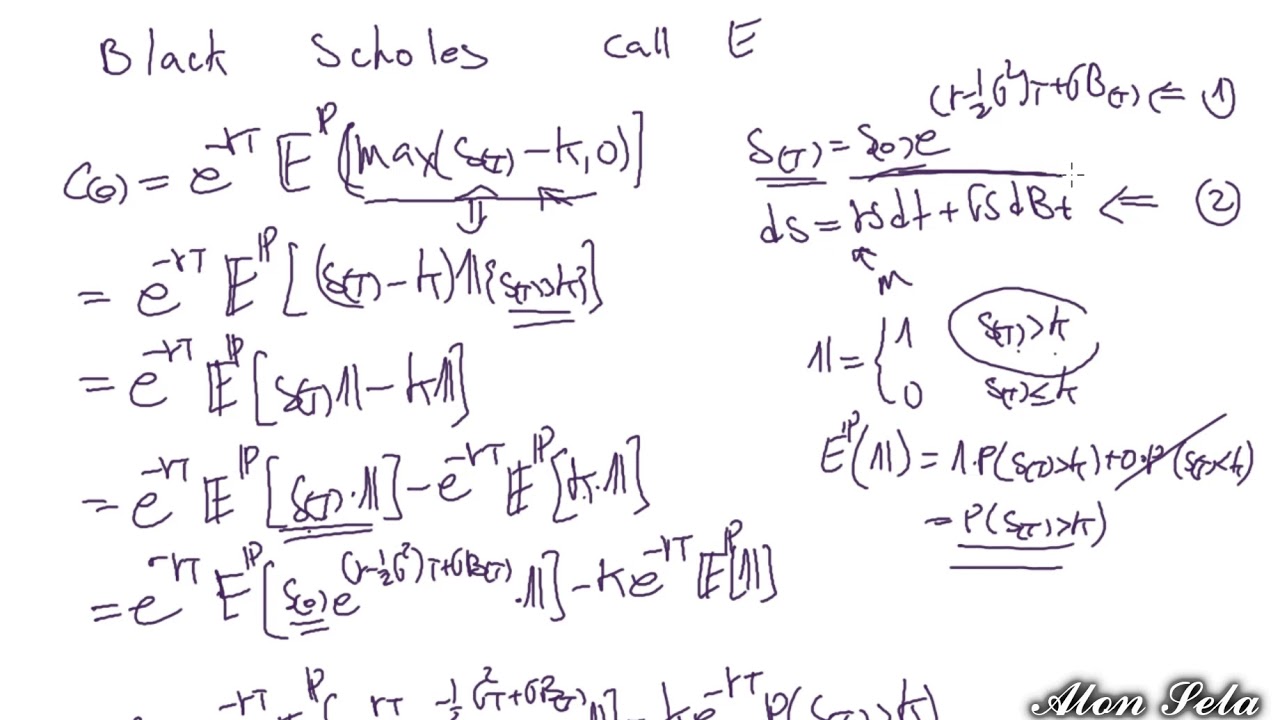 Black Scholes call E
C(0) = e^{-rT} 𝔼^ℙ[(max(S(T) - k, 0)]
= e^{-rT} 𝔼^ℙ[(S(T) - k)𝟙{S(T)>k}]
= e^{-rT} 𝔼^ℙ[S(T)𝟙 - k𝟙]
= e^{-rT} 𝔼^ℙ[S(T)·𝟙] - e^{-rT} 𝔼^ℙ[k·𝟙]
= e^{-rT} 𝔼^ℙ[S(0)e^{(r-½σ²)T+σB(T)}·𝟙] - ke^{-rT} 𝔼^ℙ[𝟙]
S(T) = S(0)e^{(r-½σ²)T+σB(T)} ⇐ ①
ds = rsdt + σsdBt ⇐ ②
M
𝟙 = { 1 S(T)>k
0 S(T)≤k
E^ℙ(𝟙) = 1·P(S(T)>k)+0·P(S(T)<k)
= P(S(T)>k)
Alon Sela